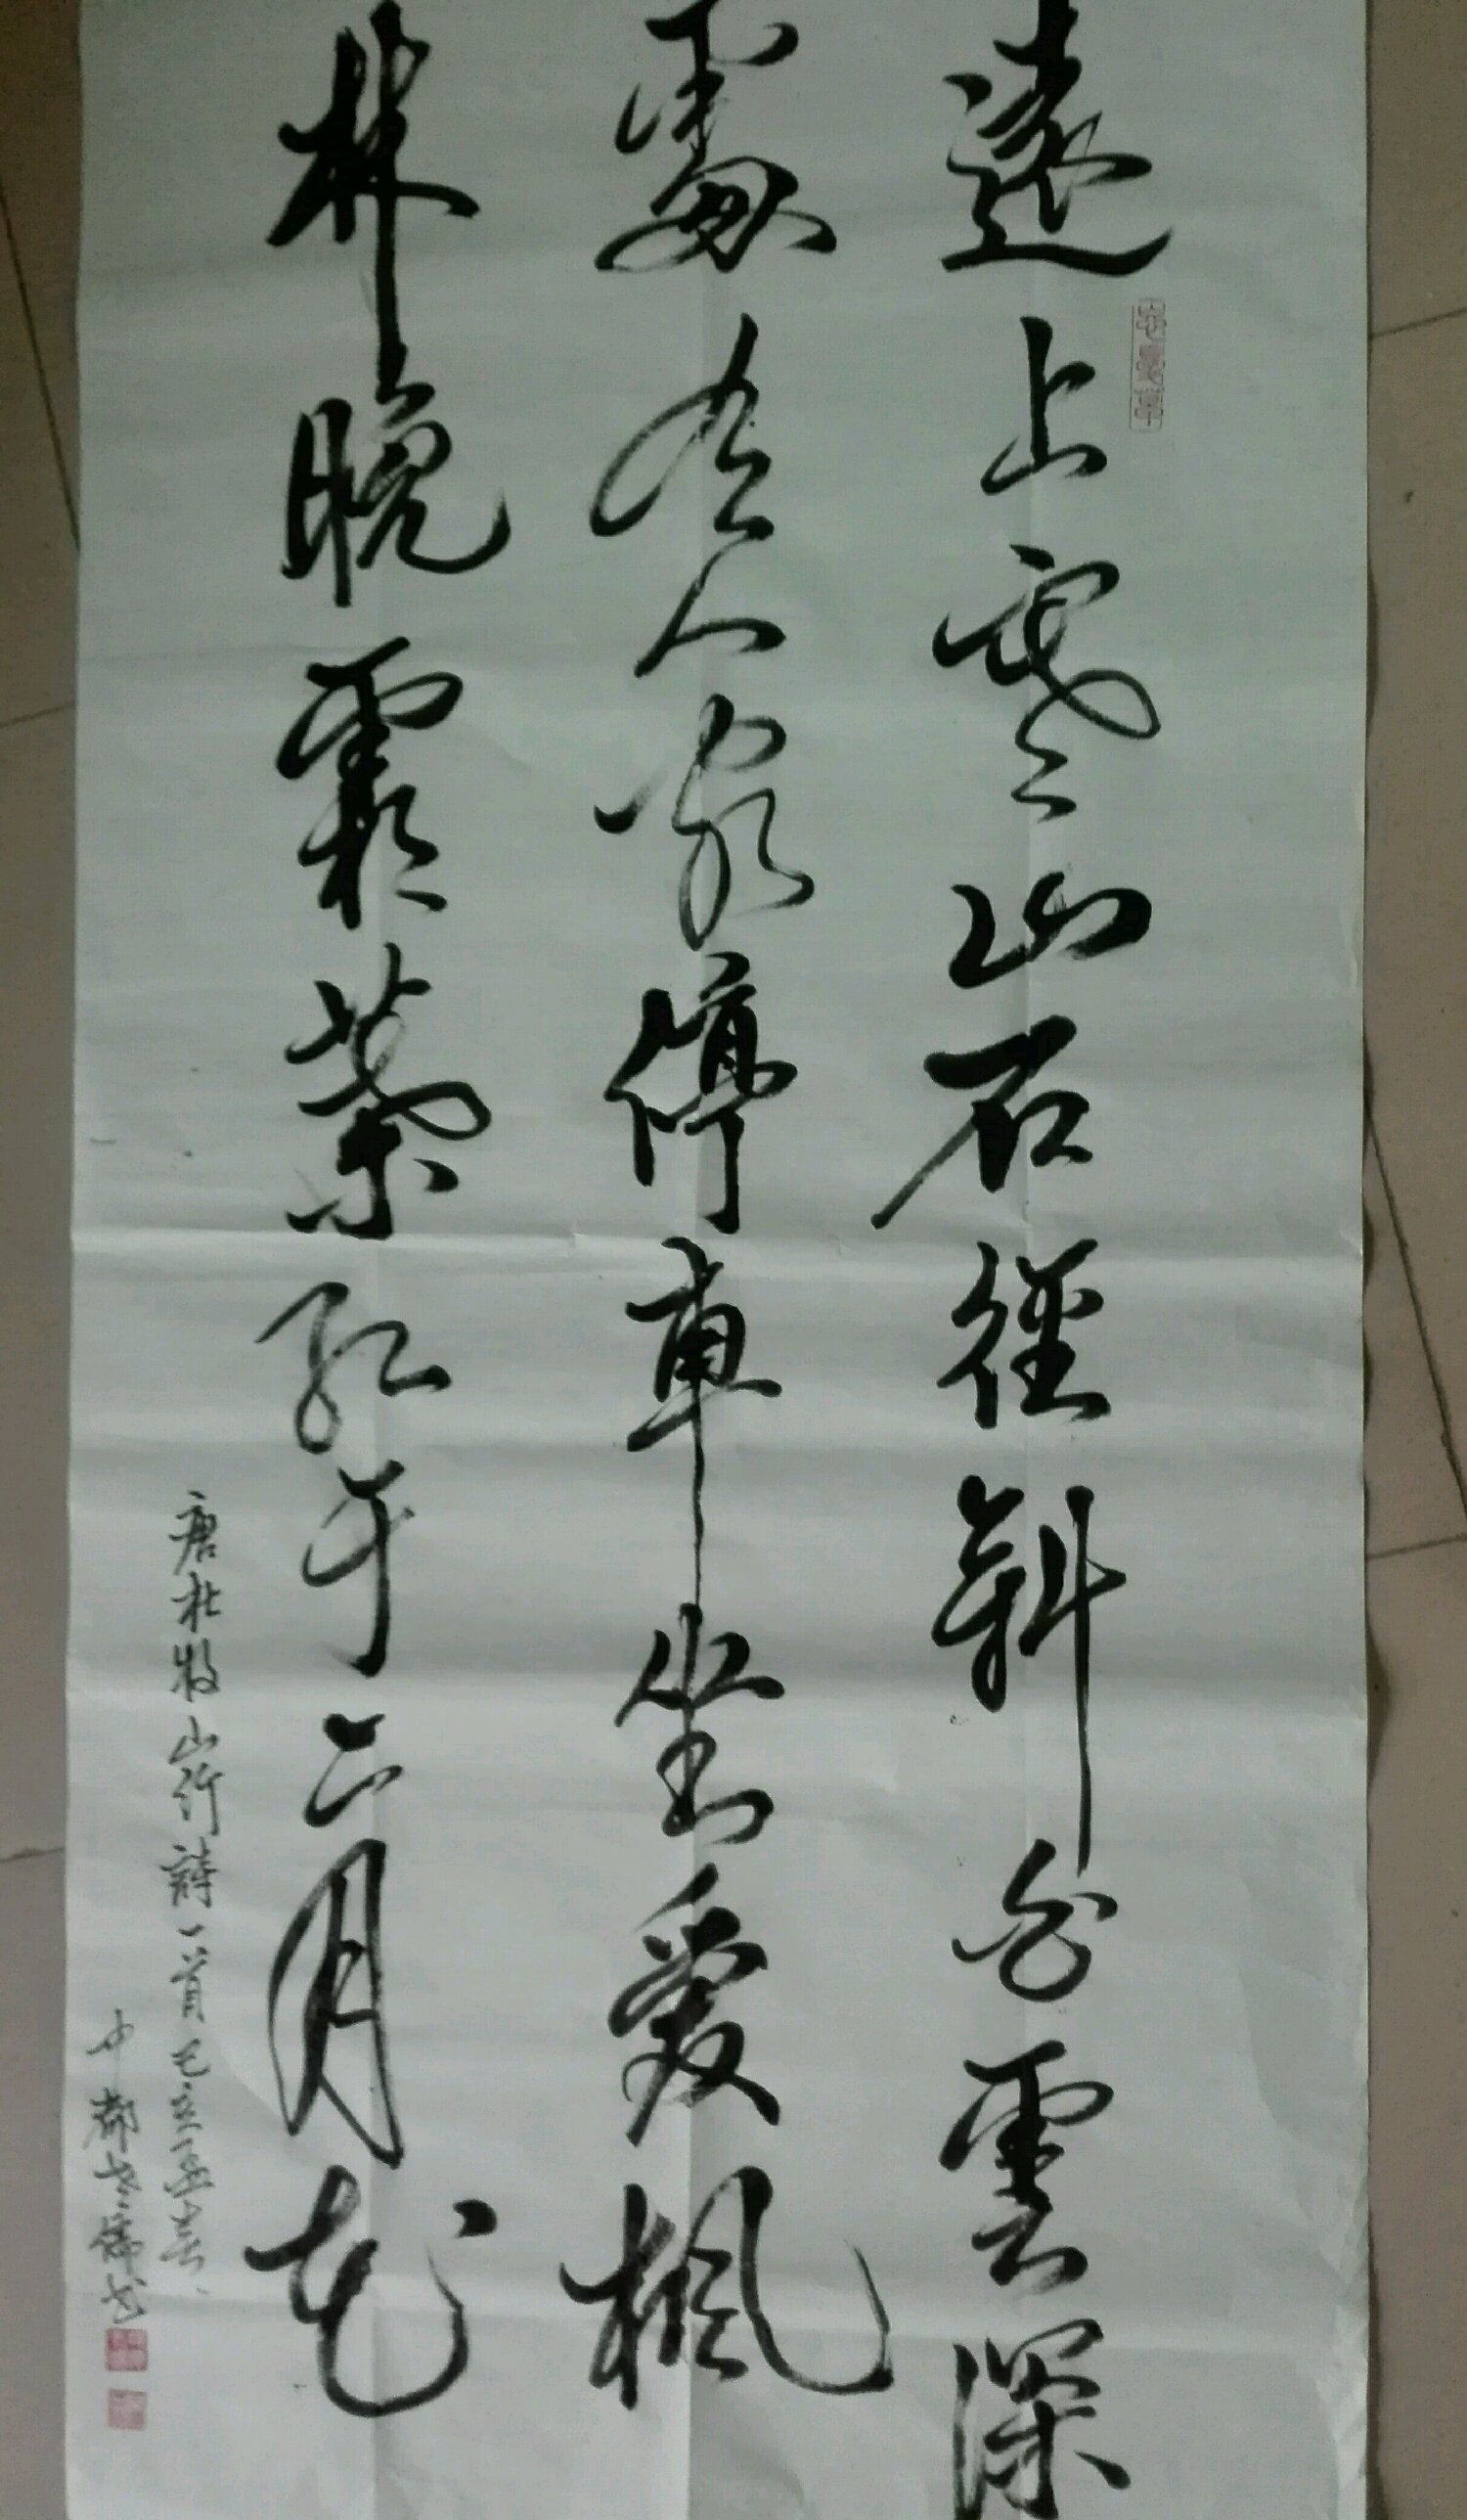 遠上寒山石徑斜白雲深
處有人家停車坐愛楓
林晚霜葉紅于二月花
唐杜牧山行詩一首
中都